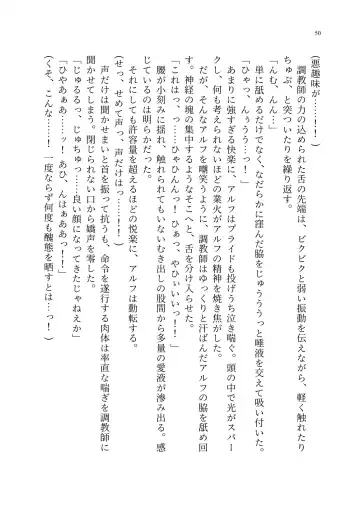 50
(悪趣味が……!!)
調教師の力の込められた舌の先端は、ビクビクと弱い振動を伝えながら、軽く触れたり
ちゅぷ、と突ついたりを繰り返す。
「んむ、んん……」
単に舐めるだけでなく、なだらかに窪んだ脇をじゅうううっと唾液を交えて吸い付いた。
「ひゃっ、んうっ……!」
あまりに強すぎる快楽に、アルフはプライドも投げうち泣き喘ぐ。頭の中で光がスパー
クし、何も考えられないほどの業火がアルフの精神を焼き焦がした。
だが、そんなアルフを嘲笑うように、調教師はゆっくりと汗ばんだアルフの脇を舐め回
す。神経の塊の集中するようなそこへと、舌を分け入れて。
「これはっ、っ……ひゃひんんっ! ひぁっ、やひぃいいっ!!」
腰が小刻みに揺れ、触れられてもいないむき出しの股間から多量の愛液が滲み出る。感
じているのは明らかだった。
それにしても許容量を超えるほどの悦楽に、アルフは動転する。
(せっ、せめて声っ、声だけはっ……!)
声だけは聞かせまいと首を振って抗うも、命令を遂行する肉体は率直な喘ぎを調教師に
聞かせてしまう。閉じられない口から嬌声を零した。
「じゅるるっ、じゅちゅっ……良い顔になってきたじゃねえか」
「ひやあぁあ……ッ! あひ、んはぁああっ!!」
(くそ、こんな……! 一度ならず何度も醜態を晒すとは……っ!)